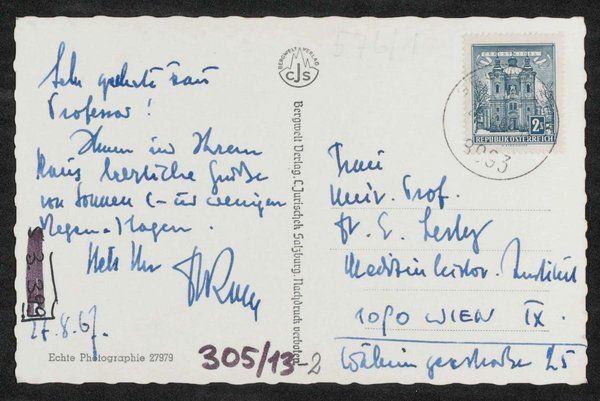 Sehr geehrte Frau
Professor!
Ihnen und Ihrem
Haus herzliche Grüße
von Sonnen (- und wenigen
Regen-)tagen.
Stets Ihr
27.8.67.
Echte Photographie 27979
305/13-2
576/1
BERGWELT VERLAG
CJS
Bergwelt Verlag, C. Jurischek Salzburg. Nachdruck verboten
CHRISTKINDL
2S
REPUBLIK ÖSTERREICH
8993
Frau
Univ. Prof.
Dr. E. Lesky
Medizinhistor. Institut
1090 WIEN IX.
Währingerstraße 25